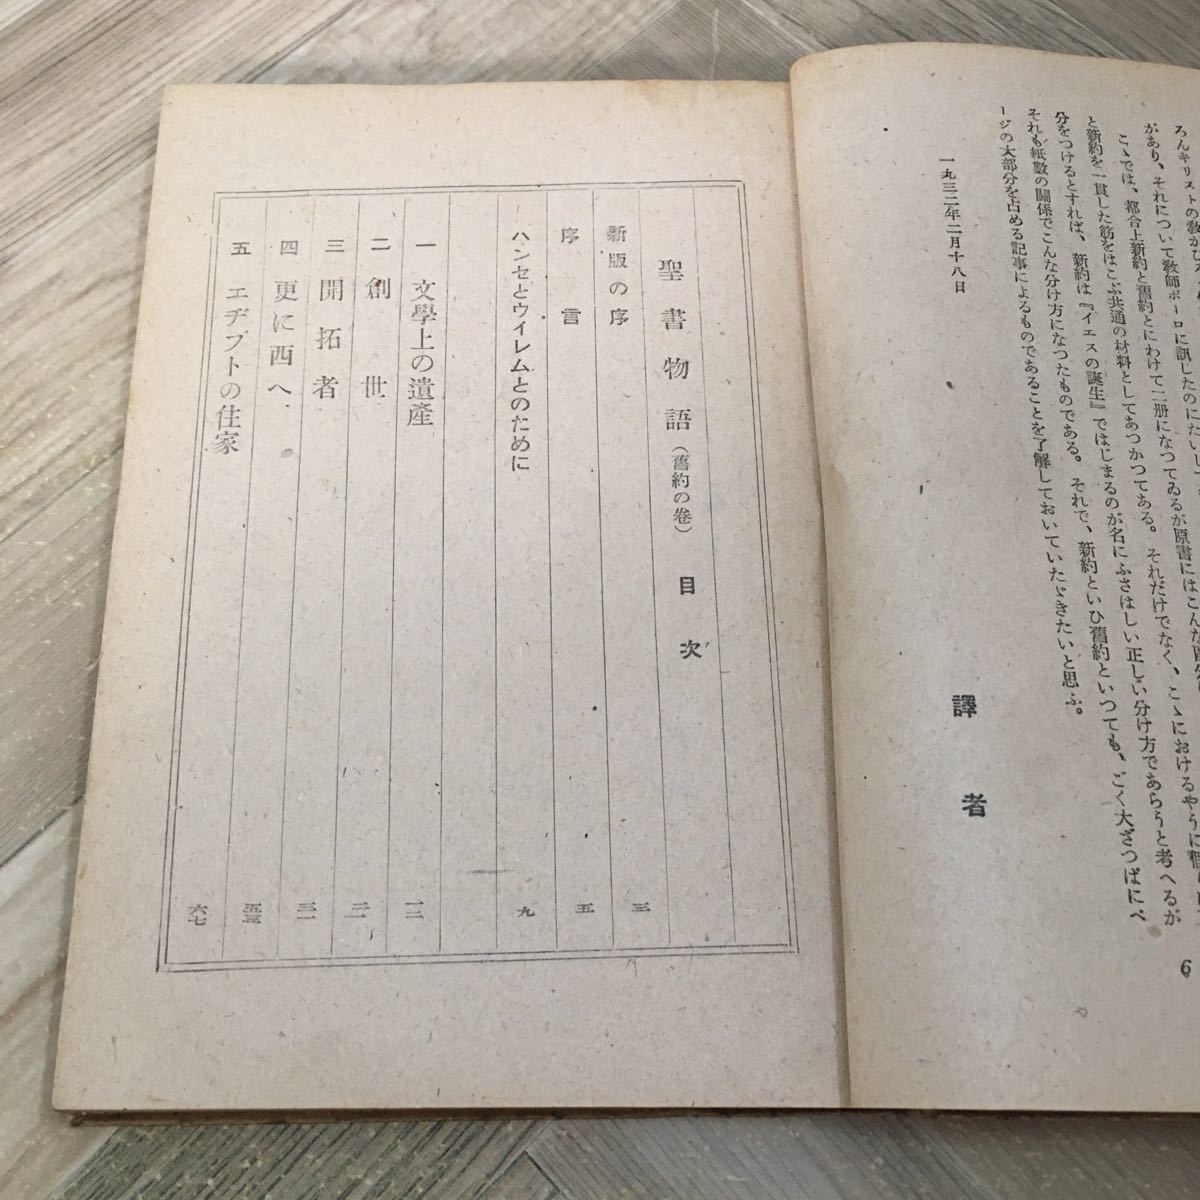 ろんキリストの教がひろ
があり、それについて教師ポーロに訊したのにたいし
こゝでは、都合上新約と舊約とにわけて二册になつてゐるが原書にはこんな
と新約を一貫した筋をはこぶ共通の材料としてあつかつてある。それだけでなく、こゝにおけるやうに
分をつけるとすれば、新約は『イエスの誕生』ではじまるのが名にふさはしい正しい分け方であらうと考へるが
それも紙數の關係でこんな分け方になつたものである。それで、新約といひ舊約といつても、ごく大ざつぱにペ
ージの大部分を占める記事によるものであることを了解しておいていたゞきたいと思ふ。
一九三二年二月十八日
譯者
6
聖書物語(舊約の卷) 目次
新版の序 三
序言 五
ハンセとウイレムとのために 九
一 文學上の遺産 一二
二 創世 二一
三 開拓者 三一
四 更に西へ 五三
五 エヂプトの住家 六七